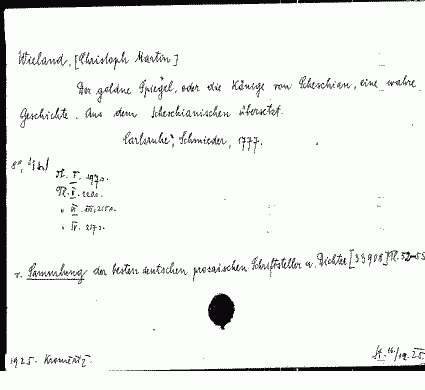 Wieland, [Christoph Martin]
Der goldne Spiegel, oder die Könige von Scheschian, eine wahre
Geschichte. Aus dem Scheschianischen übersetzt.
Carlsruhe, Schmieder, 1777.
8°,
Tl. I. 197 s.
Tl. II. 220 s.
" III. 215 s.
" IV. 217 s.
v. Sammlung der besten deutschen prosaischen Schriftsteller u. Dichter [33908] Tl. 52-55
1925. Kroměříž. 25.